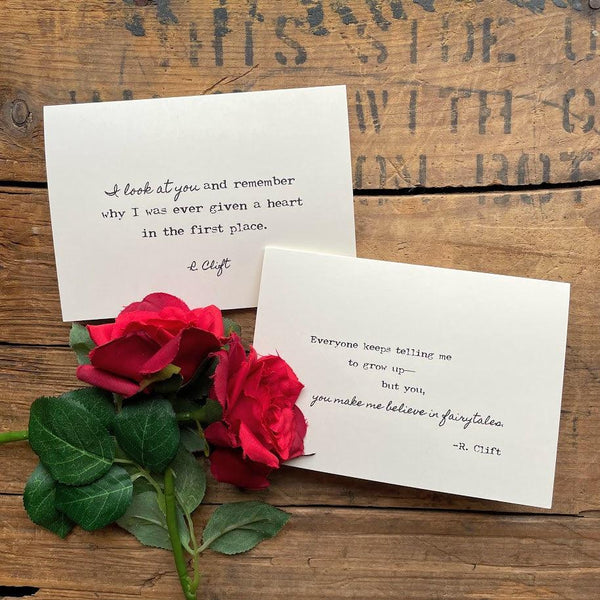 THIS SIDE U
WITH C
BOT
I look at you and remember
why I was ever given a heart
in the first place.
R. Clift
Everyone keeps telling me
to grow up—
but you,
you make me believe in fairytales.
-R. Clift